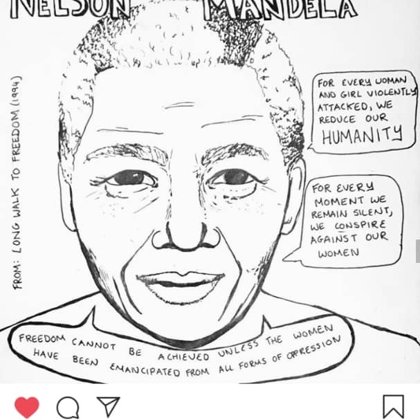 NELSON MANDELA
FROM: LONG WALK TO FREEDOM (1994)
FOR EVERY WOMAN
AND GIRL VIOLENTLY
ATTACKED, WE
REDUCE OUR
HUMANITY
FOR EVERY
MOMENT WE
REMAIN SILENT,
WE CONSPIRE
AGAINST OUR
WOMEN
FREEDOM CANNOT BE ACHIEVED UNLESS THE WOMEN
HAVE BEEN EMANCIPATED FROM ALL FORMS OF OPRESSION